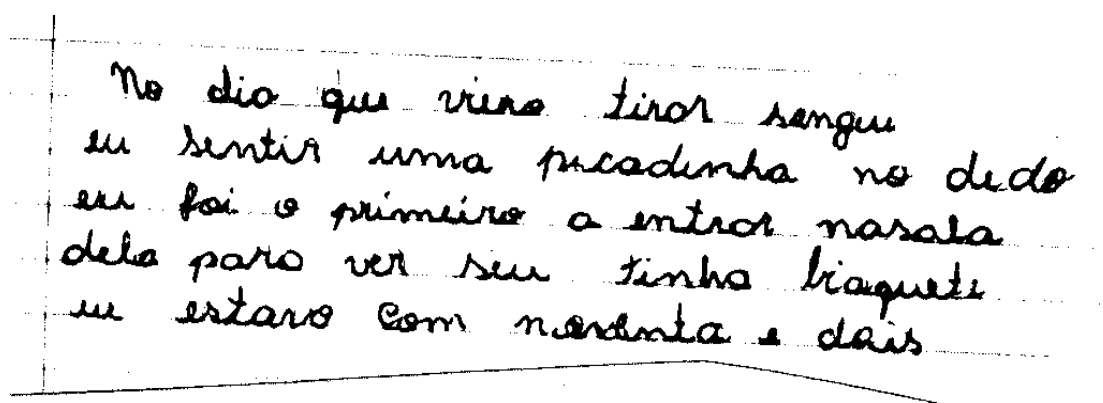 No dia que viero tirar sangue
eu sentir uma picadinha no dedo
eu foi o primeiro a entrar nasala
dela para ver seu tinha biaquete
eu estava com noventa e dois